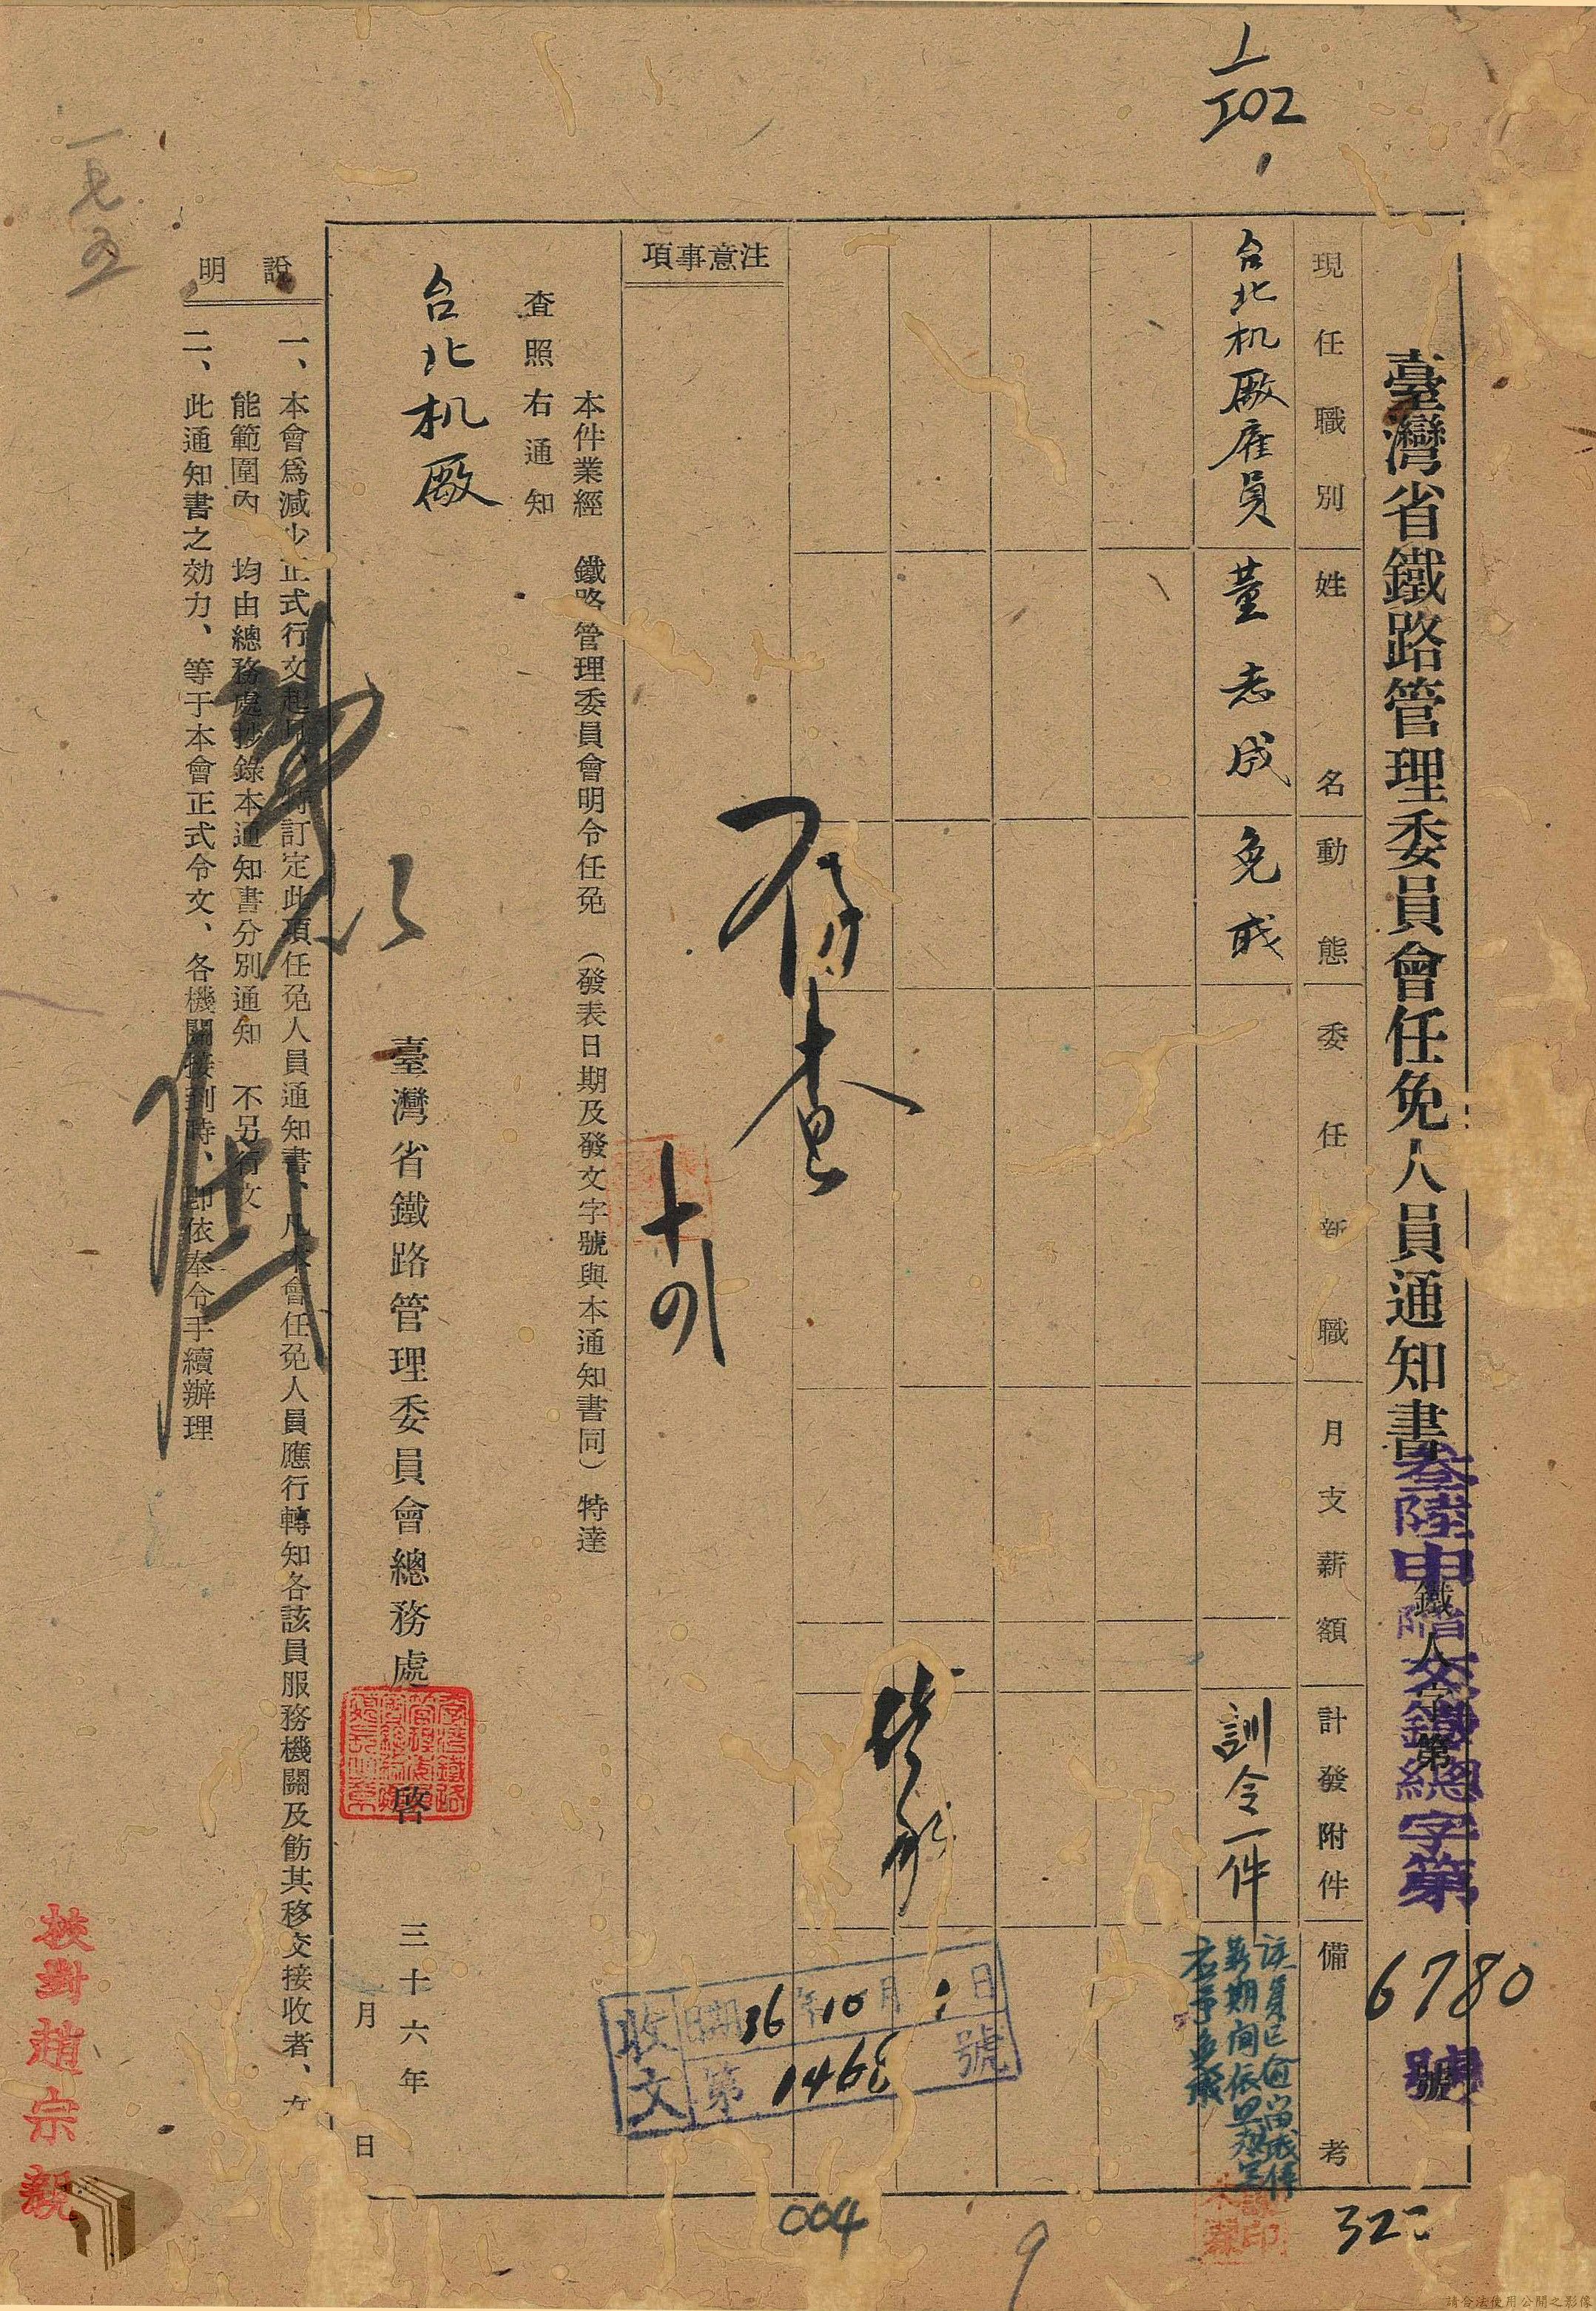 臺灣省鐵路管理委員會任免人員通知書
叁陸申陷交鐵總字第
鐵人字第
6780
號
現任職別
姓名
動態
委任新職
月支薪額
計發附件
備考
台北机廠雇員
董志成
免職
訓令一件
該員已逾留職停
薪期間依照規定
應予免職
注意事項
存查
本件業經 鐵路管理委員會明令任免 (發表日期及發文字號與本通知書同) 特達
查照右通知
台北机廠
臺灣省鐵路管理委員會總務處 啓
三十六年
月 日
說明
一、本會爲減少正式行文起見特訂定此項任免人員通知書、凡本會任免人員應行轉知各該員服務機關及飭其移交接收者、在
能範圍內 均由總務處抄錄本通知書分別通知 不另行文
二、此通知書之効力、等于本會正式令文、各機關接到時、卽依奉令手續辦理
收文
日期36年10月1日
第1468號
校對趙宗親
一七五
004
9
322
請合法使用公開之影像